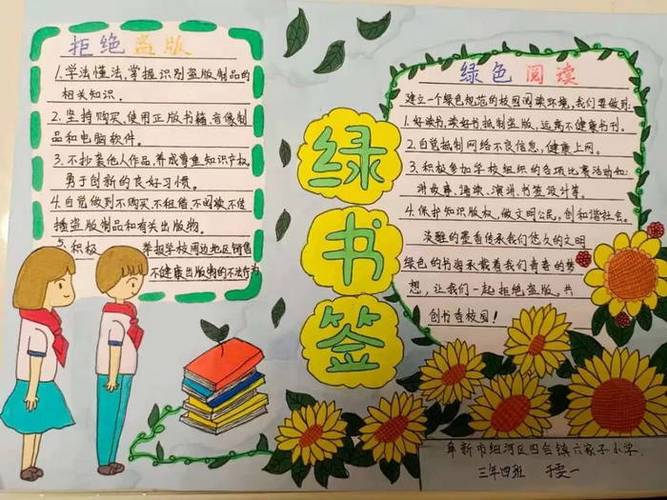 拒绝盗版
1.学法懂法,掌握识别盗版制品的
相关知识。
2.坚持购买、使用正版书籍、音像制
品和电脑软件。
3.不抄袭他人作品,养成尊重知识产权、
勇于创新的良好习惯。
4.自觉做到不购买、不租借、不阅读、不传
播盗版制品和有关出版物。
5.积极 举报学校周边地区销售
不健康出版物的不法行为
绿书签
绿色阅读
建立一个绿色规范的校园阅读环境,我们要做到:
1.好读书,读好书抵制盗版,远离不健康书刊。
2.自觉抵制网络不良信息,健康上网。
3.积极参加学校组织的各项比赛活动如:
讲故事、诵读、演讲、书签设计等。
4.保护知识版权,做文明公民,创和谐社会。
淡雅的墨香传承我们悠久的文明
绿色的书海承载着我们青春的梦
想,让我们一起拒绝盗版,共
创书香校园!
阜新市细河区四合镇六家子小学
三年四班 于雯一